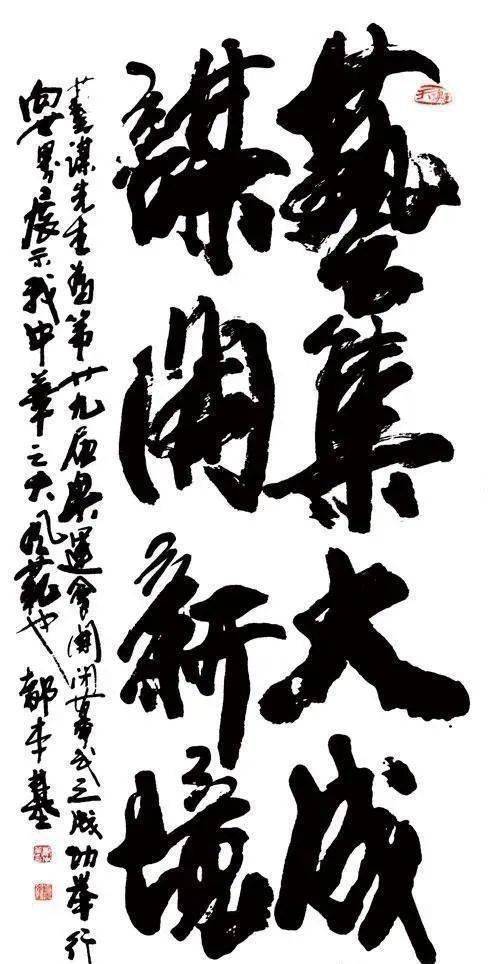 藝集大成
謀開新境
藝謀先生為第廿九届奥運會開闭幕式之成功舉行
向世界展示我中華之大風範也 都本基